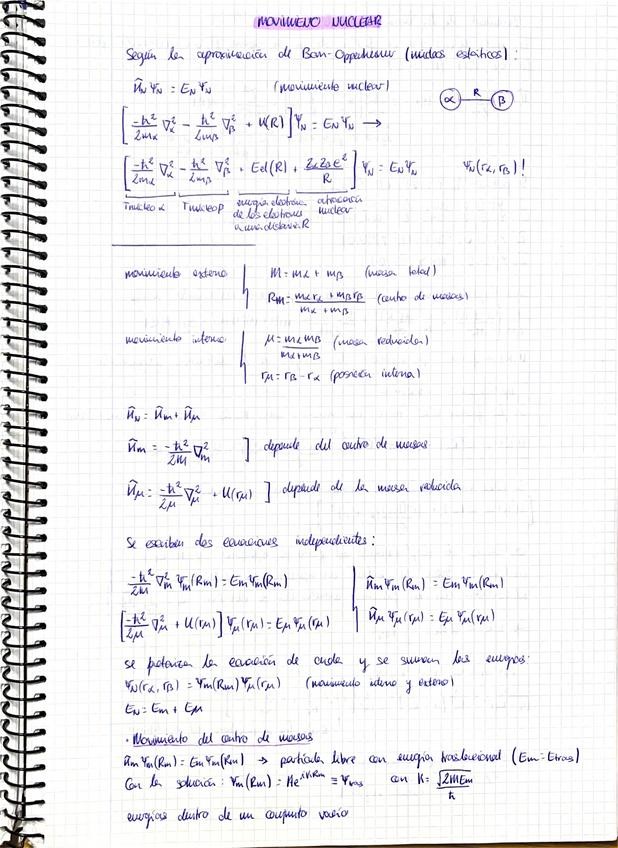 MOVIMIENTO NUCLEAR
Según la aproximación de Born-Oppenheimer (núcleos estáticos):
Ĥ_N Ψ_N = E_N Ψ_N (movimiento nuclear)
α R β
[-ħ²/2mα ∇²α - ħ²/2mβ ∇²β + U(R)] Ψ_N = E_N Ψ_N →
[-ħ²/2mα ∇²α - ħ²/2mβ ∇²β + Eel(R) + ZαZβe²/R] Ψ_N = E_N Ψ_N Ψ_N(rα, rβ)!
Tnúcleo α Tnúcleo β energía electrónica
de los electrones nuclear
a una distancia R
movimiento externo M = mα + mβ (masa total)
Rm = mαrα + mβrβ / mα + mβ (centro de masas)
movimiento interno μ = mαmβ / mα+mβ (masa reducida)
rμ = rβ - rα (posición interna)
Ĥ_N = Ĥm + Ĥμ
Ĥm = -ħ²/2M ∇²m ] depende del centro de masas
Ĥμ = -ħ²/2μ ∇²μ + U(rμ) ] depende de la masa reducida
Se escriben dos ecuaciones independientes:
-ħ²/2M ∇²m Ψm(Rm) = Em Ψm(Rm) Ĥm Ψm(Rm) = Em Ψm(Rm)
[-ħ²/2μ ∇²μ + U(rμ)] Ψμ(rμ) = Eμ Ψμ(rμ) Ĥμ Ψμ(rμ) = Eμ Ψμ(rμ)
se la ecuación de onda y se suman las energías:
Ψ_N(rα, rβ) = Ψm(Rm) Ψμ(rμ) (movimiento interno y externo)
E_N = Em + Eμ
· Movimiento del centro de masas
Ĥm Ψm(Rm) = Em Ψm(Rm) → partícula libre con energía traslacional (Em = Etras)
Con la solución: Ψm(Rm) = Ae^iKRm ≡ Ψtras con K = √2MEm / ħ
energías dentro de un conjunto vacío